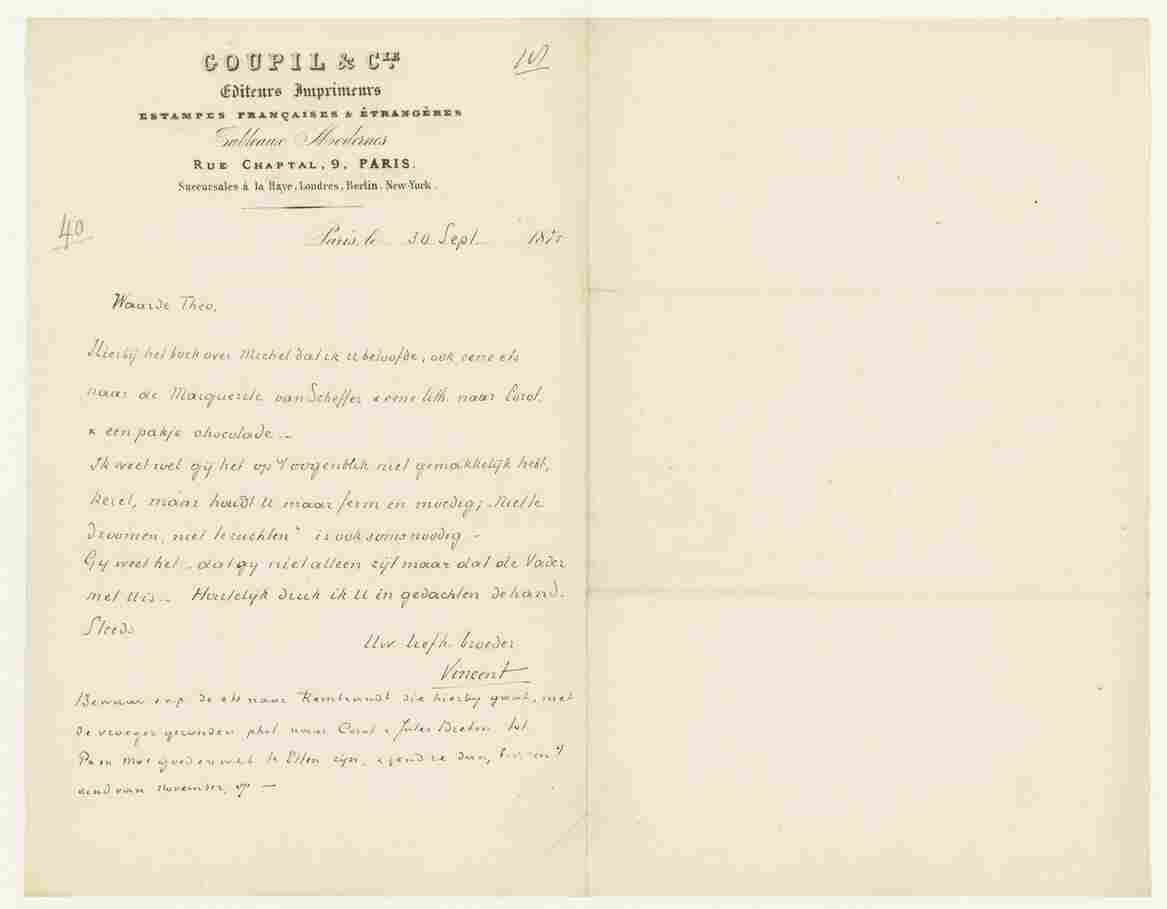 GOUPIL & CIE
Editeurs Imprimeurs
ESTAMPES FRANÇAISES & ÉTRANGÈRES
Tableaux Modernes
RUE CHAPTAL, 9, PARIS.
Succursales à la Haye, Londres, Berlin, New-York.
40
Paris, le 30 Sept 1875
Waarde Theo,
Hierbij het boek over Michel dat ik U beloofde, ook eene ets
naar de Marguerite van Scheffer & eene lith. naar Corot.
& een pakje chocolade.–
Ik weet wel gij het op 't oogenblik niet gemakkelijk hebt,
kerel, maar houdt U maar ferm en moedig; „Niet te
droomen, niet te zuchten" is ook soms noodig –
Gy weet het – dat gy niet alleen zijt maar dat de Vader
met U is.– Hartelijk druk ik U in gedachten de hand.
Steeds
Uw liefh. broeder
Vincent
Bewaar s.v.p. de ets naar Rembrandt die hierbij gaat, met
de vroeger gezonden phot. naar Corot & Jules Breton tot
Pa en Moe te Etten zijn, & zend ze dan, 't
eind van November, op –